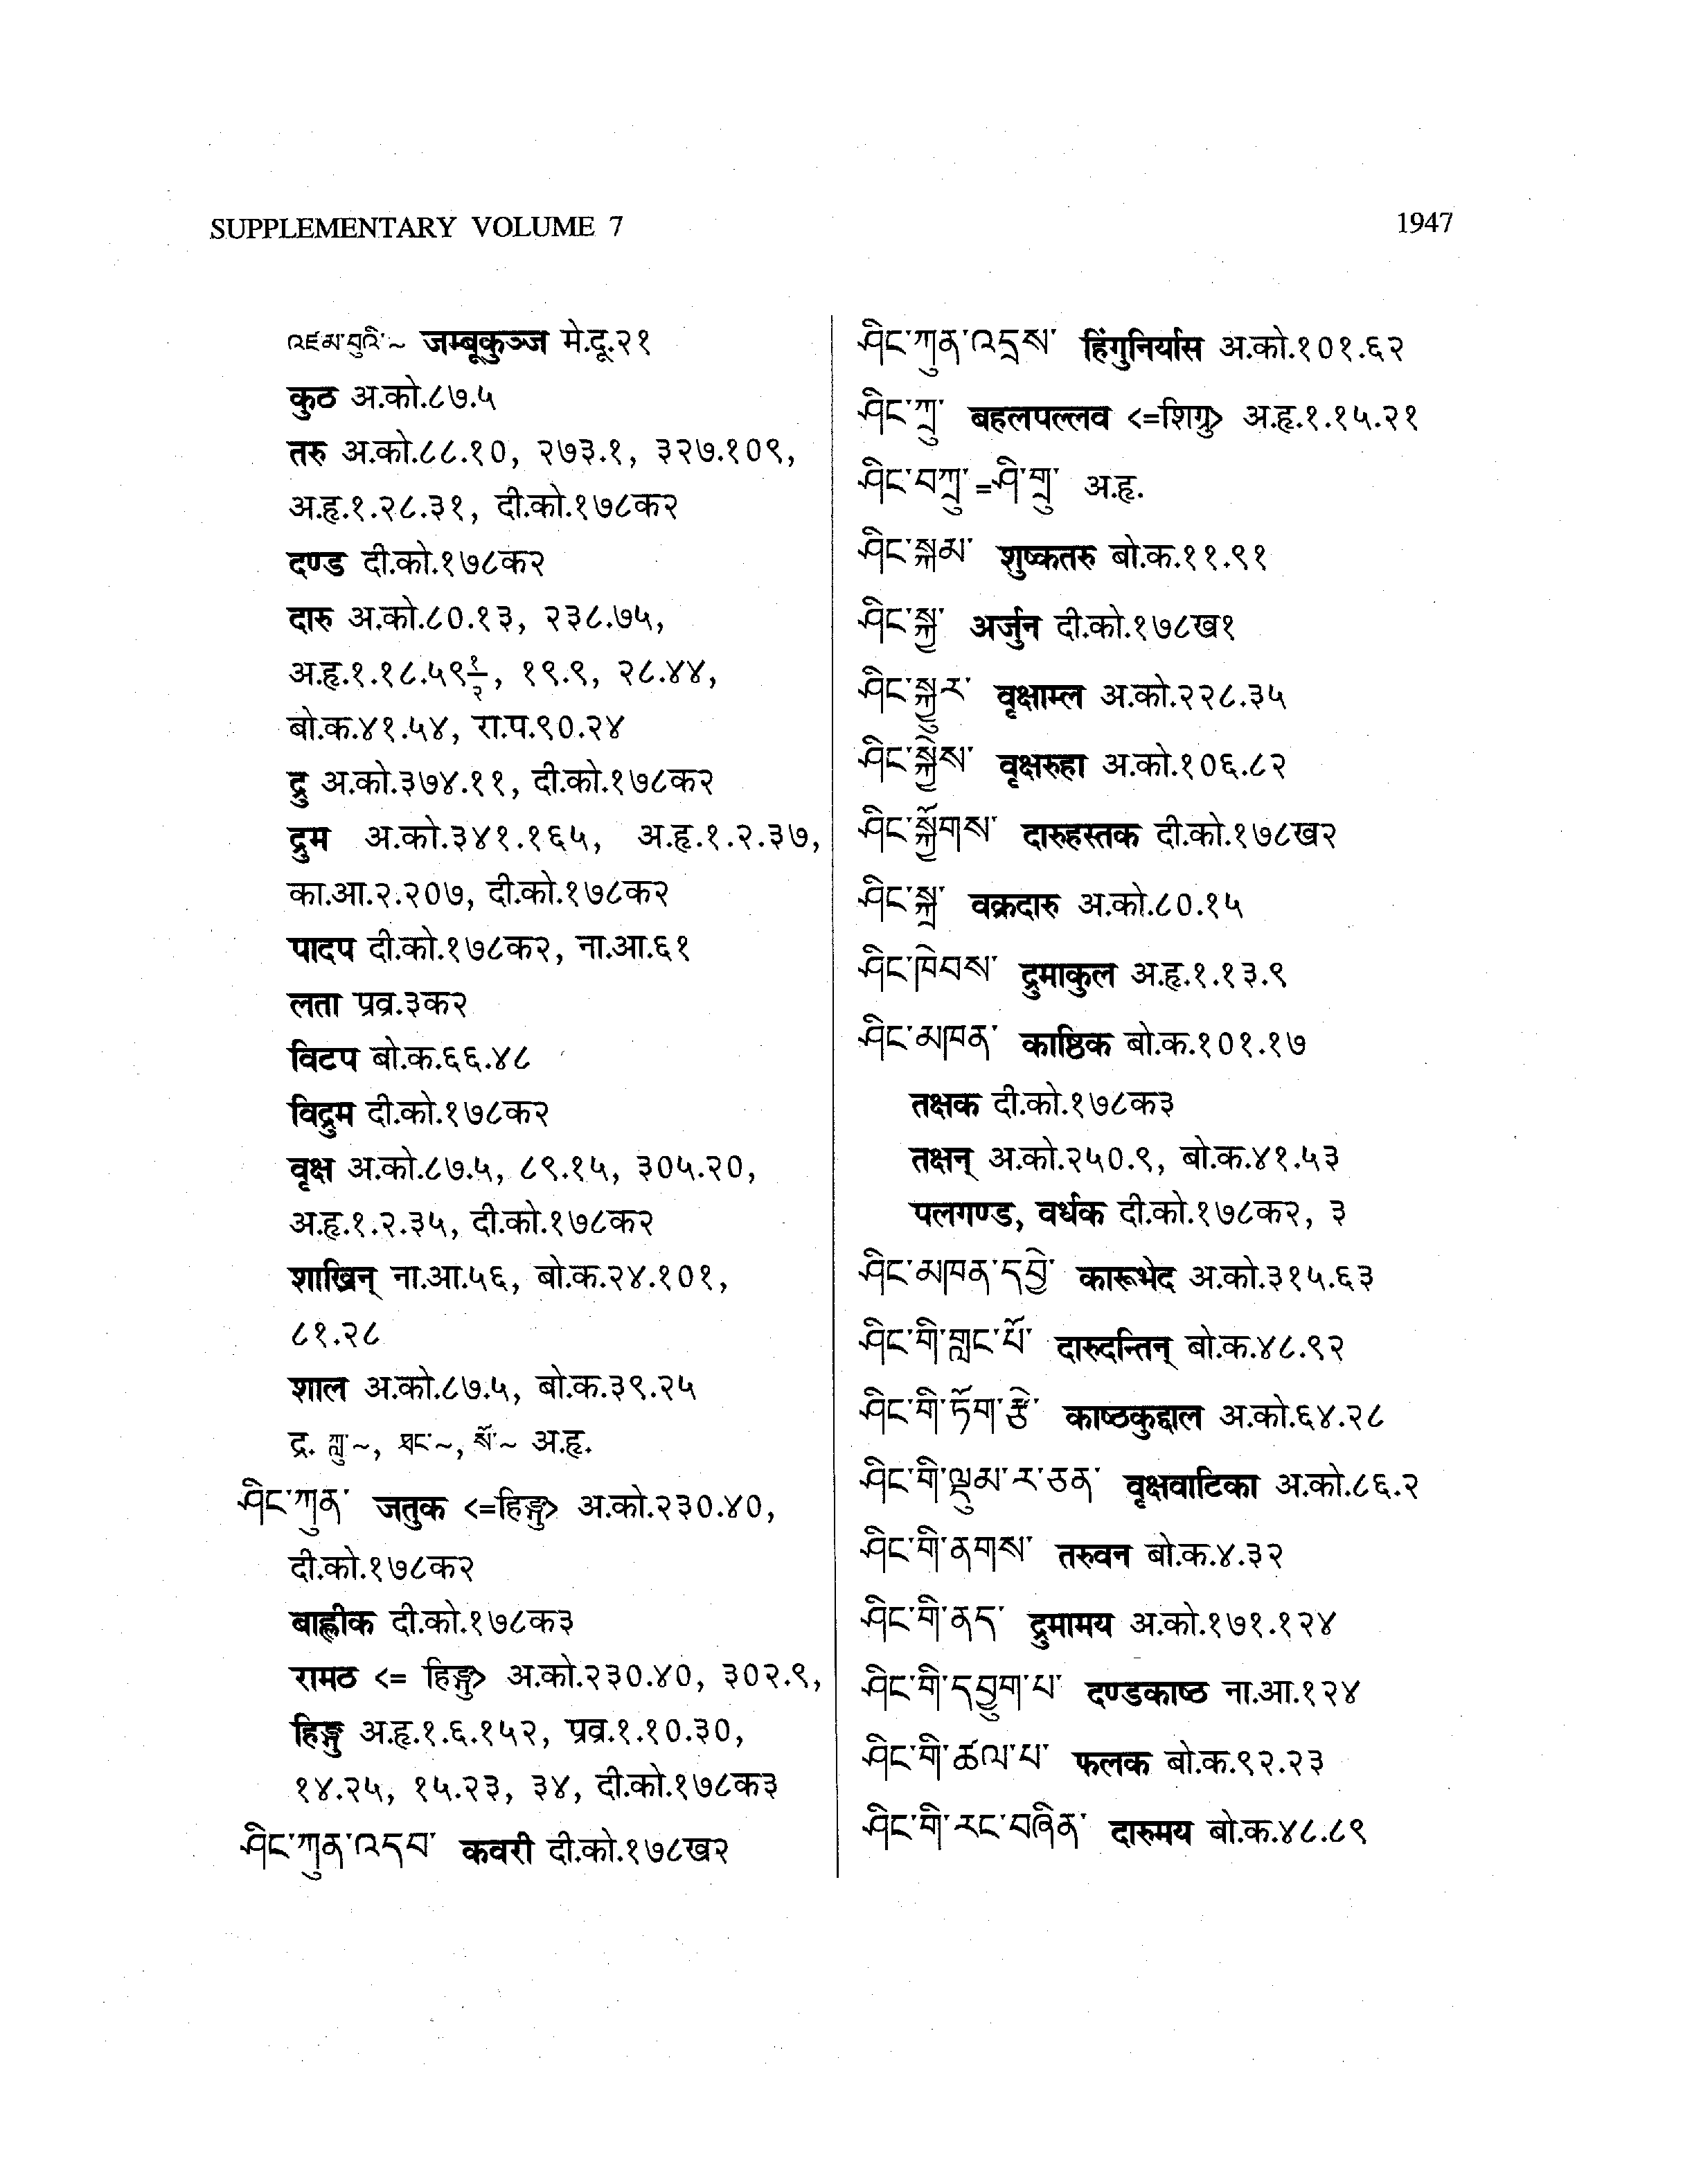 SUPPLEMENTARY VOLUME 7
1947
འཛམ་བུའི་~ जम्बूकुञ्ज मे.दू.२१
कुठ अ.को.८७.५
तरु अ.को.८८.१०, २७३.१, ३२७.१०९,
अ.हृ.१.२८.३१, दी.को.१७८क२
दण्ड दी.को.१७८क२
दारु अ.को.८०.१३, २३८.७५,
अ.हृ.१.१८.५९१/२, १९.९, २८.४४,
बो.क.४१.५४, रा.प.९०.२४
द्रु अ.को.३७४.११, दी.को.१७८क२
द्रुम अ.को.३४१.१६५, अ.हृ.१.२.३७,
का.आ.२.२०७, दी.को.१७८क२
पादप दी.को.१७८क२, ना.आ.६१
लता प्रव्र.३क२
विटप बो.क.६६.४८
विद्रुम दी.को.१७८क२
वृक्ष अ.को.८७.५, ८९.१५, ३०५.२०,
अ.हृ.१.२.३५, दी.को.१७८क२
शाखिन् ना.आ.५६, बो.क.२४.१०१,
८१.२८
शाल अ.को.८७.५, बो.क.३९.२५
द्र. ཀླུ་~, ཐང་~, སོ་~ अ.हृ.
ཤིང་ཀུན་ जतुक <=हिङ्गु> अ.को.२३०.४०,
दी.को.१७८क२
बाह्लीक दी.को.१७८क३
रामठ <= हिङ्गु> अ.को.२३०.४०, ३०२.९,
हिङ्गु अ.हृ.१.६.१५२, प्रव्र.१.१०.३०,
१४.२५, १५.२३, ३४, दी.को.१७८क३
ཤིང་ཀུན་འདབ་ कवरी दी.को.१७८ख२
ཤིང་ཀུན་འདྲས་ हिंगुनिर्यास अ.को.१०१.६२
ཤིང་ཀྲུ་ बहलपल्लव <=शिग्रु> अ.हृ.१.१५.२१
ཤིང་བཀྲུ་=ཤི་གྲུ་ अ.हृ.
ཤིང་སྐམ་ शुष्कतरु बो.क.११.९१
ཤིང་སྐྱ་ अर्जुन दी.को.१७८ख१
ཤིང་སྐྱུར་ वृक्षाम्ल अ.को.२२८.३५
ཤིང་སྐྱེས་ वृक्षरुहा अ.को.१०६.८२
ཤིང་སྐྱོགས་ दारुहस्तक दी.को.१७८ख२
ཤིང་སྐྲ་ वक्रदारु अ.को.८०.१५
ཤིང་ཁེབས་ द्रुमाकुल अ.हृ.१.१३.९
ཤིང་མཁན་ काष्ठिक बो.क.१०१.१७
तक्षक दी.को.१७८क३
तक्षन् अ.को.२५०.९, बो.क.४१.५३
पलगण्ड, वर्धक दी.को.१७८क२, ३
ཤིང་མཁན་དབྱེ་ कारूभेद अ.को.३१५.६३
ཤིང་གི་གླང་པོ་ दारुदन्तिन् बो.क.४८.९२
ཤིང་གི་ཏོག་རྩེ་ काष्ठकुद्दाल अ.को.६४.२८
ཤིང་གི་ལྡུམ་ར་ཅན་ वृक्षवाटिका अ.को.८६.२
ཤིང་གི་ནགས་ तरुवन बो.क.४.३२
ཤིང་གི་ནད་ द्रुमामय अ.को.१७१.१२४
ཤིང་གི་དབྱུག་པ་ दण्डकाष्ठ ना.आ.१२४
ཤིང་གི་ཚལ་པ་ फलक बो.क.९२.२३
ཤིང་གི་རང་བཞིན་ दारुमय बो.क.४८.८९